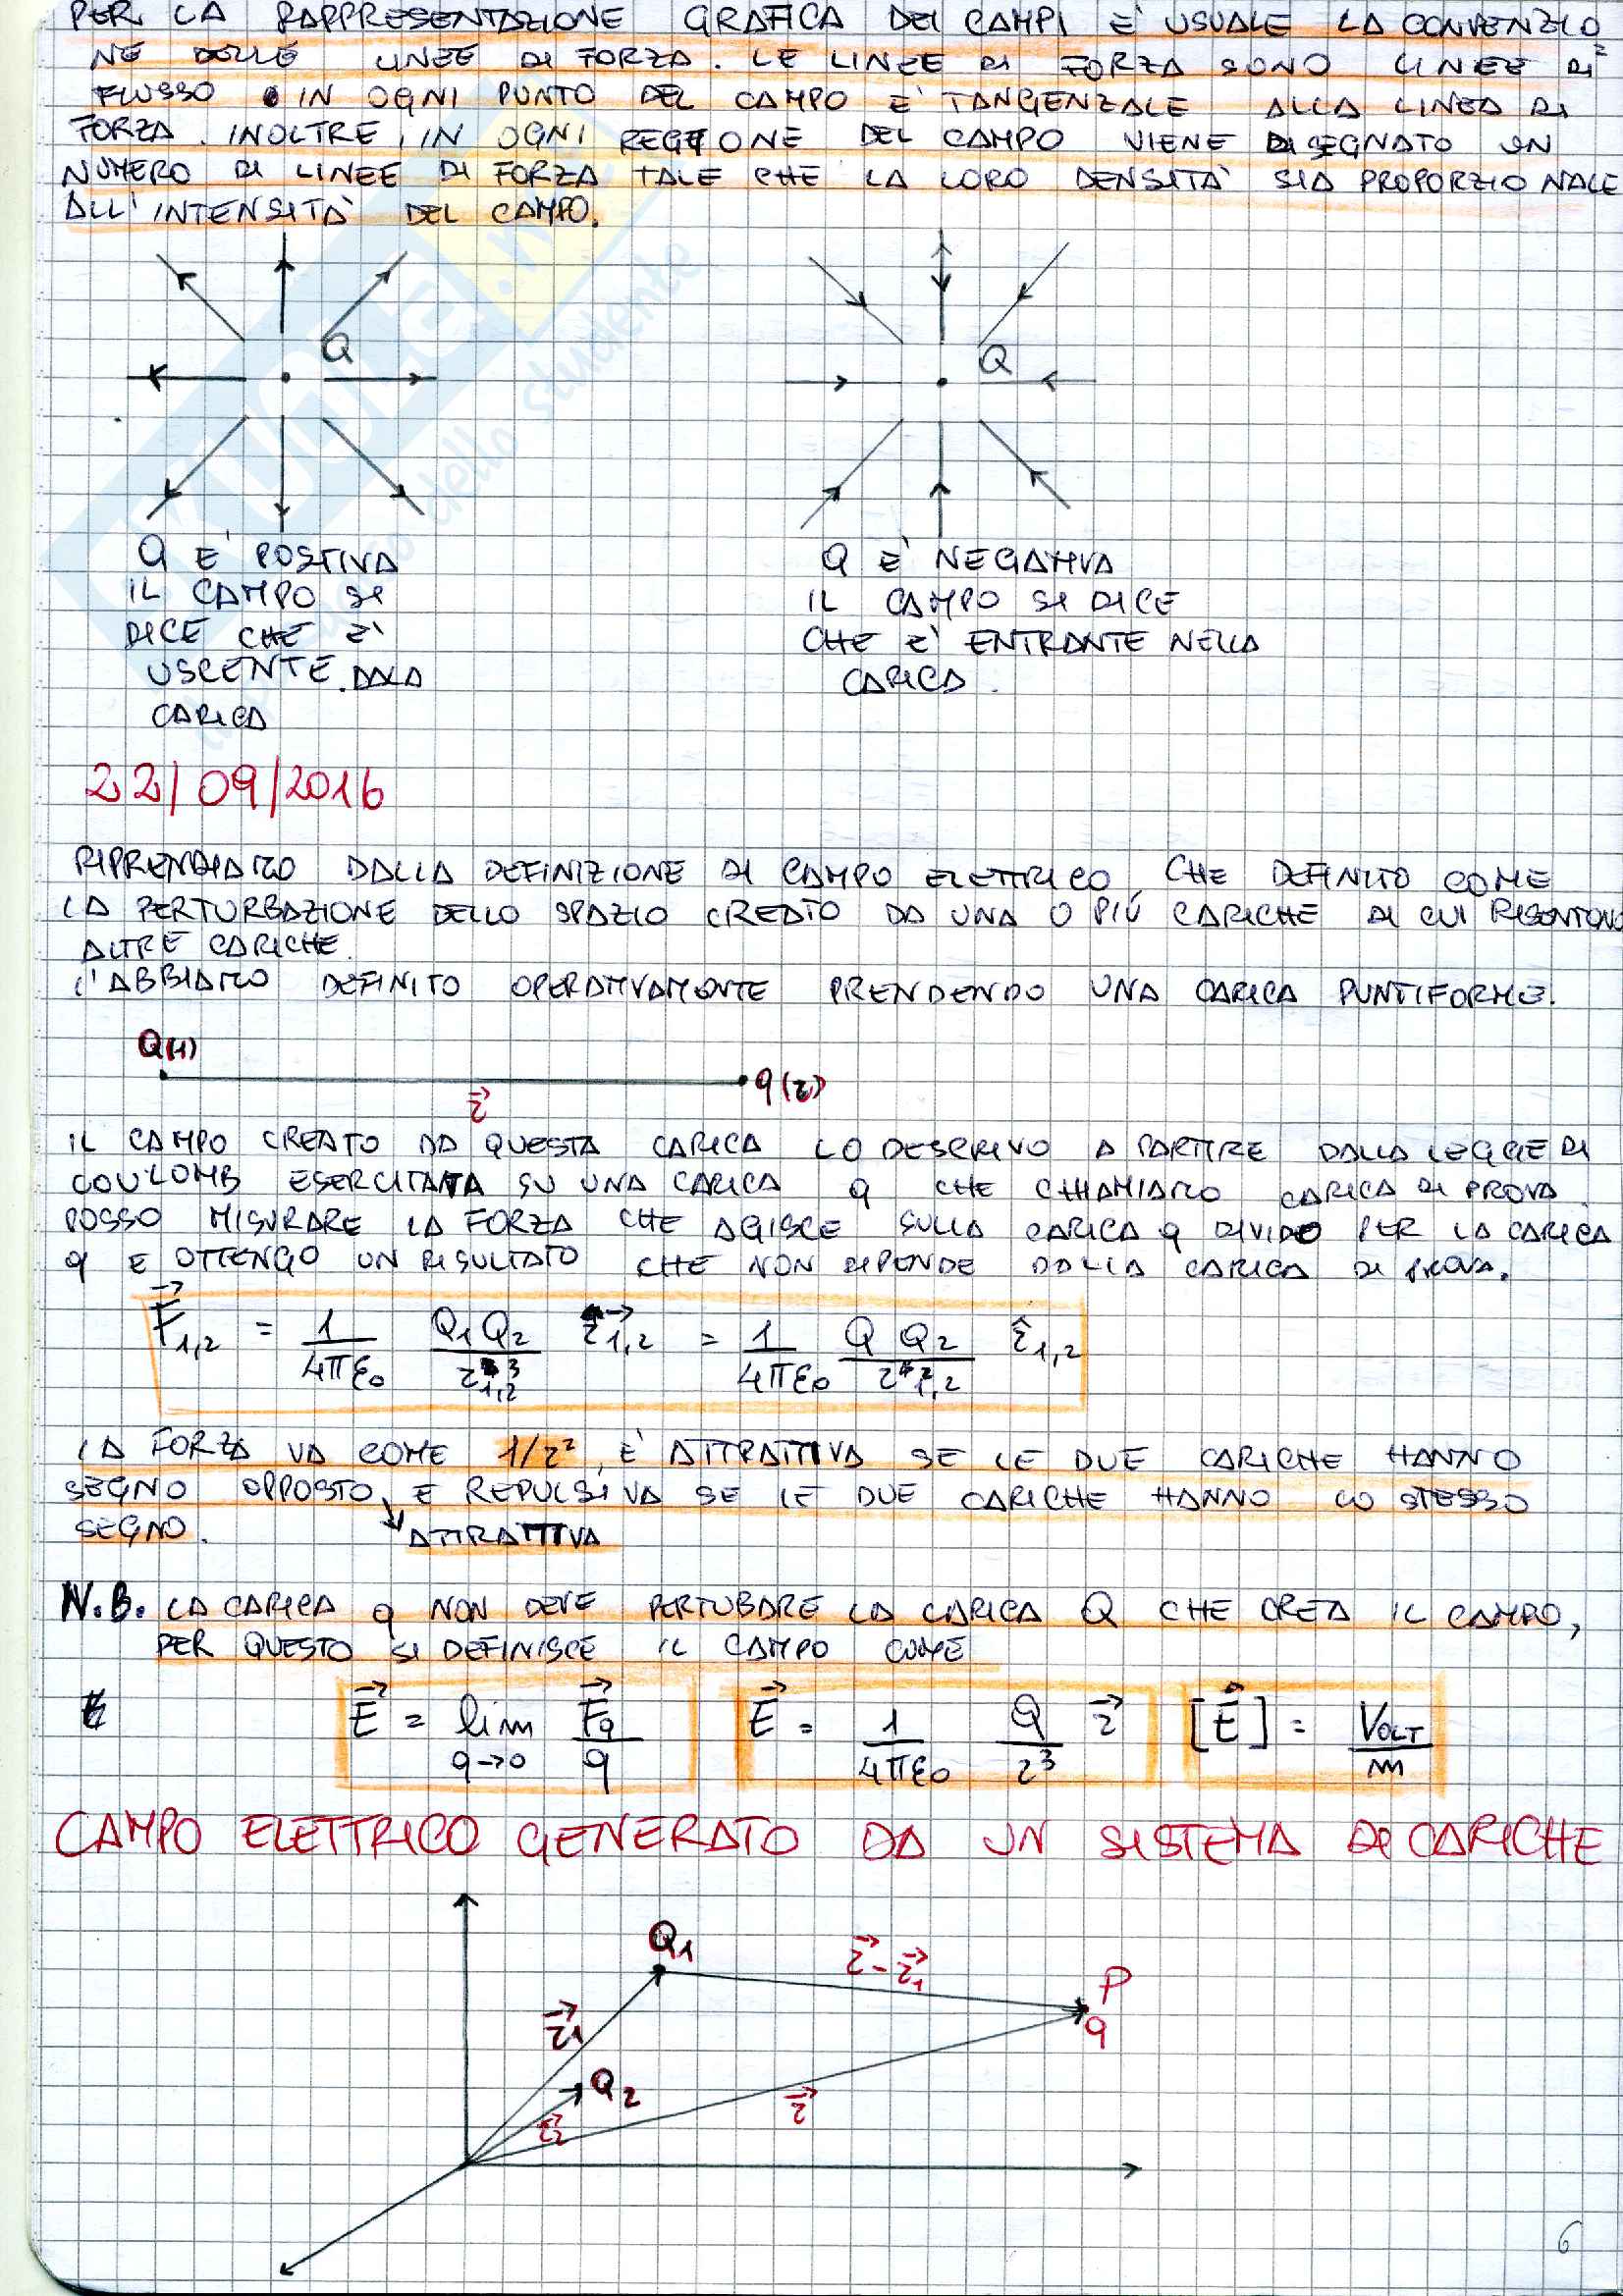 PER LA RAPPRESENTAZIONE GRAFICA DEI CAMPI E' USUALE LA CONVENZIO
NE DELLE LINEE DI FORZA. LE LINEE DI FORZA SONO LINEE DI
FLUSSO IN OGNI PUNTO DEL CAMPO E' TANGENZALE ALLA LINEA DI
FORZA. INOLTRE, IN OGNI REGIONE DEL CAMPO VIENE DISEGNATO UN
NUMERO DI LINEE DI FORZA TALE CHE LA LORO DENSITA' SIA PROPORZIONALE
ALL'INTENSITA' DEL CAMPO.
Q
Q
Q E' POSTIVA
IL CAMPO SI
DICE CHE E'
USCENTE DALA
CARICA
Q E' NEGATIVA
IL CAMPO SI DICE
CHE E' ENTRANTE NELLA
CARICA.
22/09/2016
RIPRENDIAMO DALLA DEFINIZIONE DI CAMPO ELETTRICO, CHE DEFINITO COME
LA PERTURBAZIONE DELLO SPAZIO CREATO DA UNA O PIÚ CARICHE DI CUI RISENTONO
ALTRE CARICHE.
L'ABBIAMO DEFINITO OPERATIVAMENTE PRENDENDO UNA CARICA PUNTIFORME.
Q(1)
q(2)
r⃗
IL CAMPO CREATO DA QUESTA CARICA LO DESCRIVO A PARTIRE DALLA LEGGE DI
COULOMB ESERCITATA SU UNA CARICA q CHE CHIAMIAMO CARICA DI PROVA.
POSSO MISURARE LA FORZA CHE AGISCE SULLA CARICA q DIVIDO PER LA CARICA
q E OTTENGO UN RISULTATO CHE NON DIPENDE DALLA CARICA DI PROVA.
F⃗1,2 = 1/4πε0 Q1Q2/r³1,2 r⃗1,2 = 1/4πε0 Q Q2/r²1,2 r̂1,2
LA FORZA VA COME 1/r², E' ATTRATTIVA SE LE DUE CARICHE HANNO
SEGNO OPPOSTO, E REPULSIVA SE LE DUE CARICHE HANNO LO STESSO
SEGNO.
ATTRATTIVA
N.B. LA CARICA q NON DEVE PERTUBARE LA CARICA Q CHE CREA IL CAMPO,
PER QUESTO SI DEFINISCE IL CAMPO COME
E⃗ = lim q→0 F⃗q/q E⃗ = 1/4πε0 Q/r³ r⃗ [E⃗] = VOLT/m
CAMPO ELETTRICO GENERATO DA UN SISTEMA DI CARICHE
Q1
r⃗-r⃗1
P
q
r⃗1
Q2
r⃗2
r⃗
6